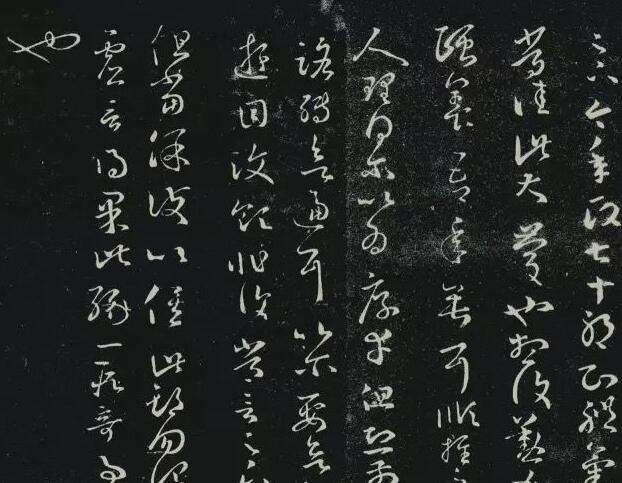 足下今年政七十耶知體氣
常佳此大慶也想復懃加
頤養吾年垂耳順推之
人理得爾以為厚幸但恐前
路轉欲逼耳以爾要欲
遊目汶領非復常言足下
但當保護以俟此期勿謂
虛言得果此緣一段奇事
也